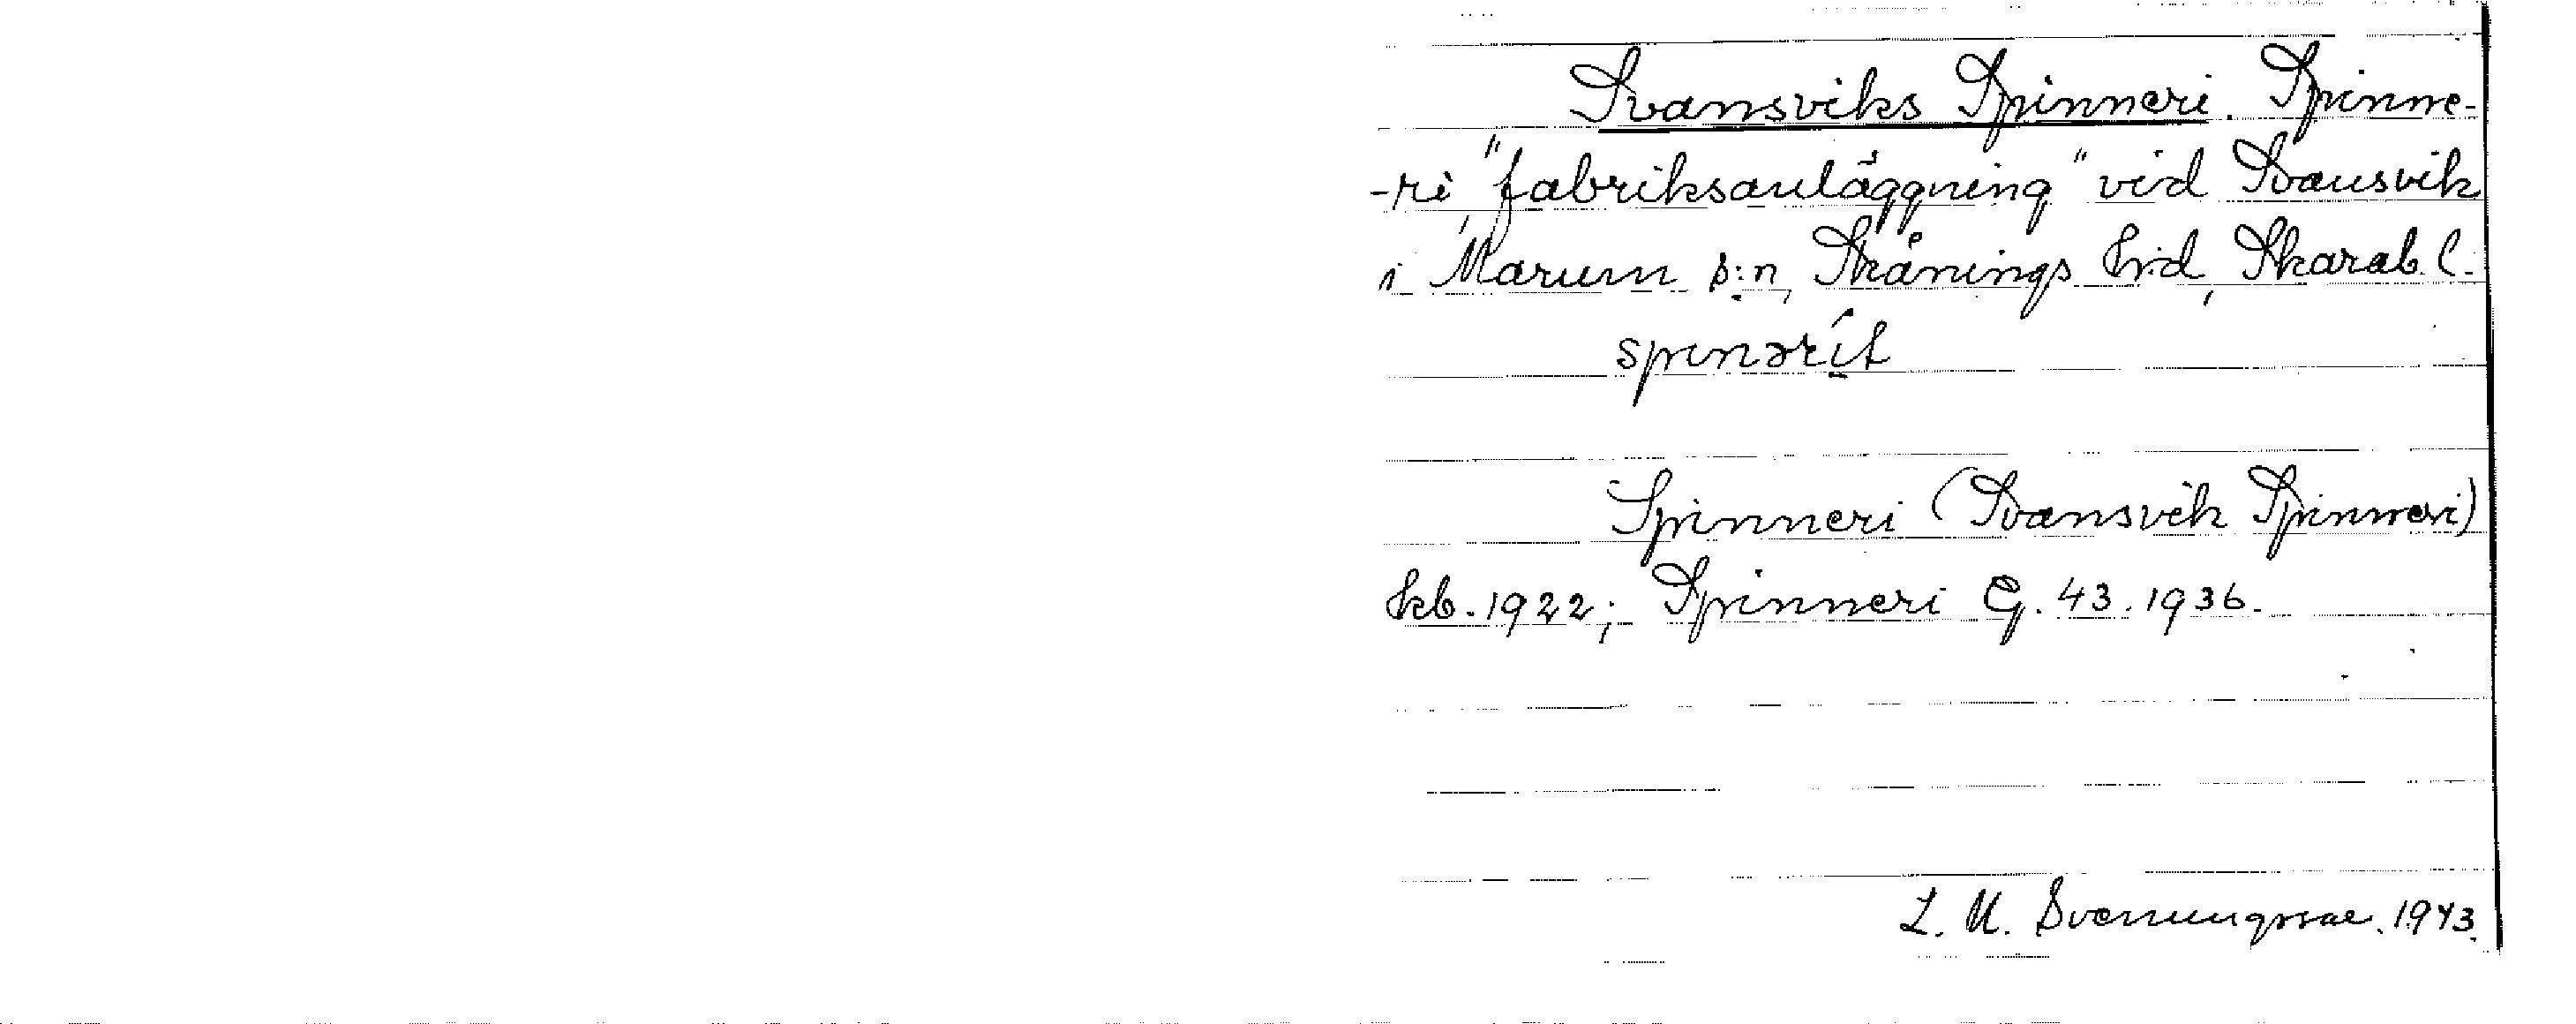 Svansviks Spinneri. Spinne-
-ri "fabriksanläggning" vid Svansvik
i Marum s:n, Skånings hrd, Skarab. l.
spinərít
Spinneri (Svansvik Spinneri)
kb. 1922; Spinneri G. 43. 1936.
L. M. Svenungsson. 1943.